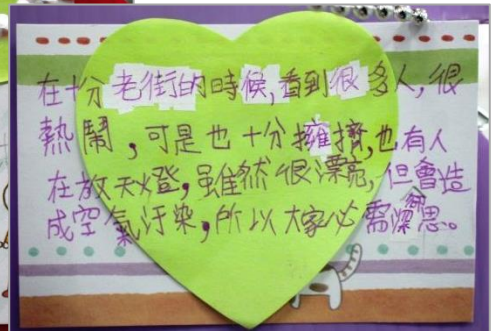 在十分老街的時候,看到很多人,很
熱鬧,可是也十分擁擠,也有人
在放天燈,雖然很漂亮,但會造
成空氣汙染,所以大家必需深思。